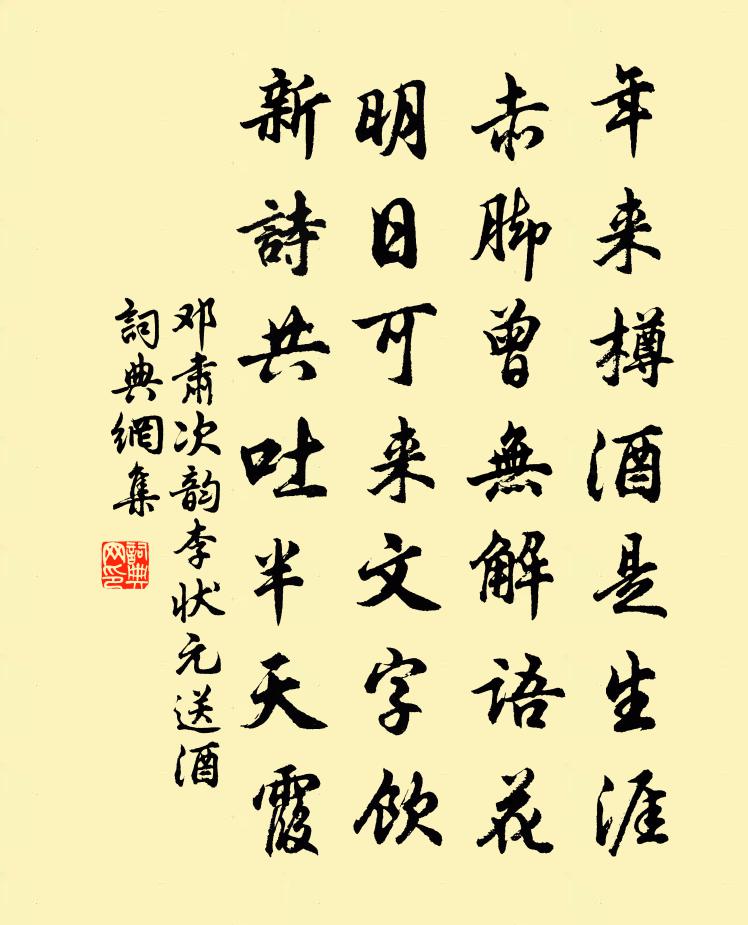 年来樽酒是生涯
赤脚曾無解语花
明日可来文字饮
新詩共吐半天霞
邓肅次韵李状元送酒
詞典網集
詞典网印